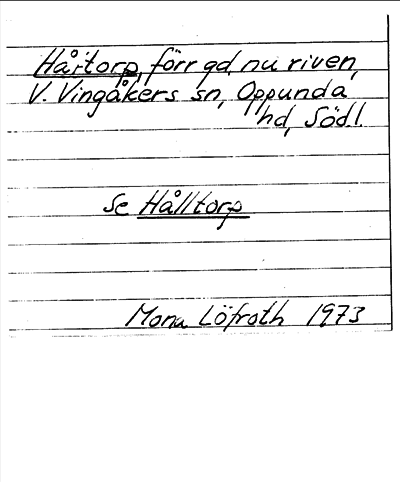 Håltorp, förr gd, nu riven,
V. Vingåkers sn, Oppunda
hd, Södl.
Se Hålltorp
Mona Löfroth 1973